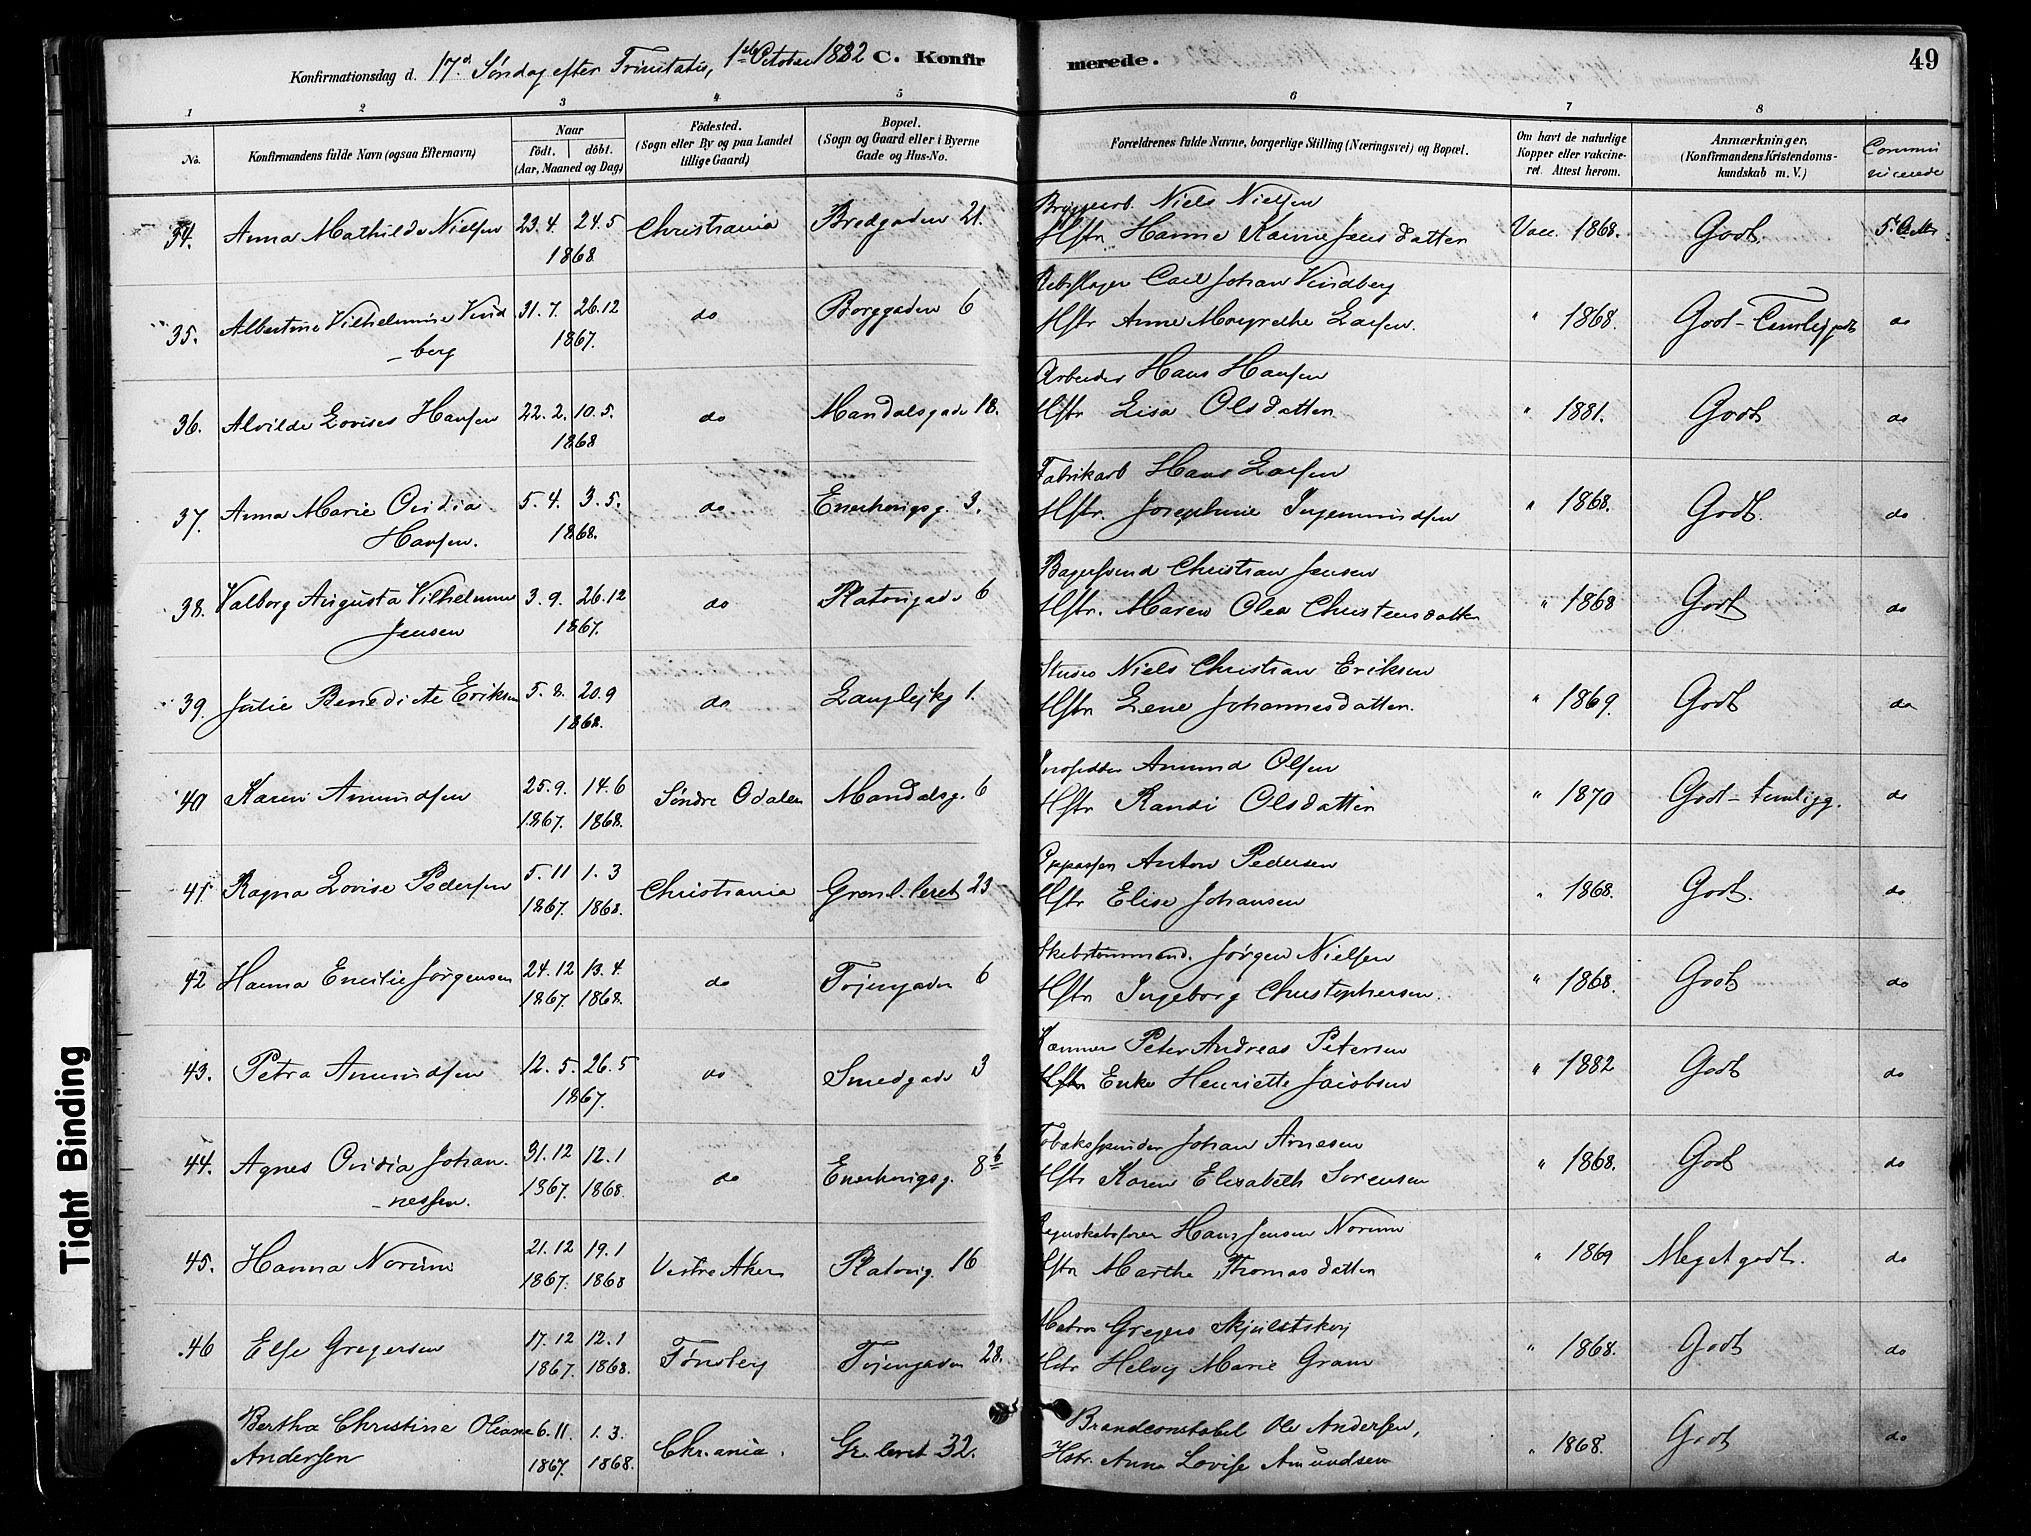 Konfirmationsdag d. 17d Søndag efter Trinitatis, 1ste October 1882 C. Konfirmerede. 49
1 2 3 4 5 6 7 8
No. Konfirmandens fulde Navn (ogsaa Efternavn) Naar født. døbt. (Aar, Maaned og Dag) Födested. (Sogn eller By og paa Landet tillige Gaard) Bopæl. (Sogn og Gaard eller i Byerne Gade og Hus-No. Forældrenes fulde Navne, borgerlige Stilling (Næringsvei) og Bopæl. Om havt de naturlige Kopper eller vakcineret. Attest herom. Anmærkninger. (Konfirmandens Kristendomskundskab m. V.) Communicerede
34. Anna Mathilde Nielsen 23.4. 24.5 1868 Christiania Bredgaden 21. Niels Nielsen
Hstr. Hanne Karine Jensdatter Vacc. 1868. Godt.
35. Albertine Vilhelmine Vindberg 31.7. 26.12 1867. do Borggaden 6 Rebslager Carl Johan Vindberg
Hstr Anne Margrethe Larsen. " 1868. Godt - Temlig godt do
36. Alvilde Lovise Hansen 22.2. 10.5. 1868 do Mandalsgade 18. Arbeider Hans Hansen
Hstr Lisa Olsdatter " 1881. Godt do
37. Anna Marie Ovidia Hansen. 5.4. 3.5. 1868. do Enerhougsg. 3. Fabrikarb Hans Larsen
Hstr. Josephine Ingemundsen " 1868. Godt. do
38. Valborg Augusta Vilhelmine Jensen 3.9. 26.12 1867. do Platougade 6 Bagersvend Christian Jensen
Hstr. Maren Olea Christensdatter " 1868 Godt do
39. Julie Benedicte Eriksen 5.8. 20.9 1868. do Langleikg 1. Niels Christian Eriksen
Hstr Lene Johannesdatter. " 1869. Godt do
40 Karen Amundsen 25.9. 1867. 14.6 1868. Søndre Odalen Mandalsg. 6 Amund Olsen
Hstr Randi Olsdatter " 1870 Godt - temlig g. do
41 Ragna Lovise Pedersen 5.11 1867. 1.3 1868. Christiania Grønl. leret 23 Anton Pedersen
Hstr Elise Johansen " 1868. Godt. do
42 Hanna Emilie Jørgensen 24.12 1867. 13.4 1868. do Tøiengaden 6 Skibstømmermand. Jørgen Nielsen
Hstr Ingeborg Christophersen. " 1868. Godt do
43. Petra Amundsen 12.5. 26.5 1867. do Smedgade 3 Peter Andreas Petersen
Enke Henriette Jacobsen " 1882 Godt do
44. Agnes Ovidia Johannessen. 31.12 1867. 12.1 1868 do Enerhougsg. 8b Tobakspinder Johan Arnesen
Hstr Karen Elisabeth Sørensen " 1868. Godt do
45. Hanna Norum 21.12 1867. 19.1 1868 Vestre Aker Platoug. 16 Regnskabsfører Hans Jensen Norum
Hstr Marthe Thomasdatter " 1869 Meget godt. do
46 Else Gregersen 17.12 1867. 12.1 1868. Tønsberg Tøiengaden 28. Matros Gregers
Hstr Helvig Marie Gram " 1868. Godt do
Bertha Christine Oleane Andersen 6.11. 1867. 1.3. 1868. Chr.ania. Gr. leret 32. Brandconstabel Ole Andersen,
Hstr. Anna Lovise Amundsen " 1868. Godt do
Tight Binding